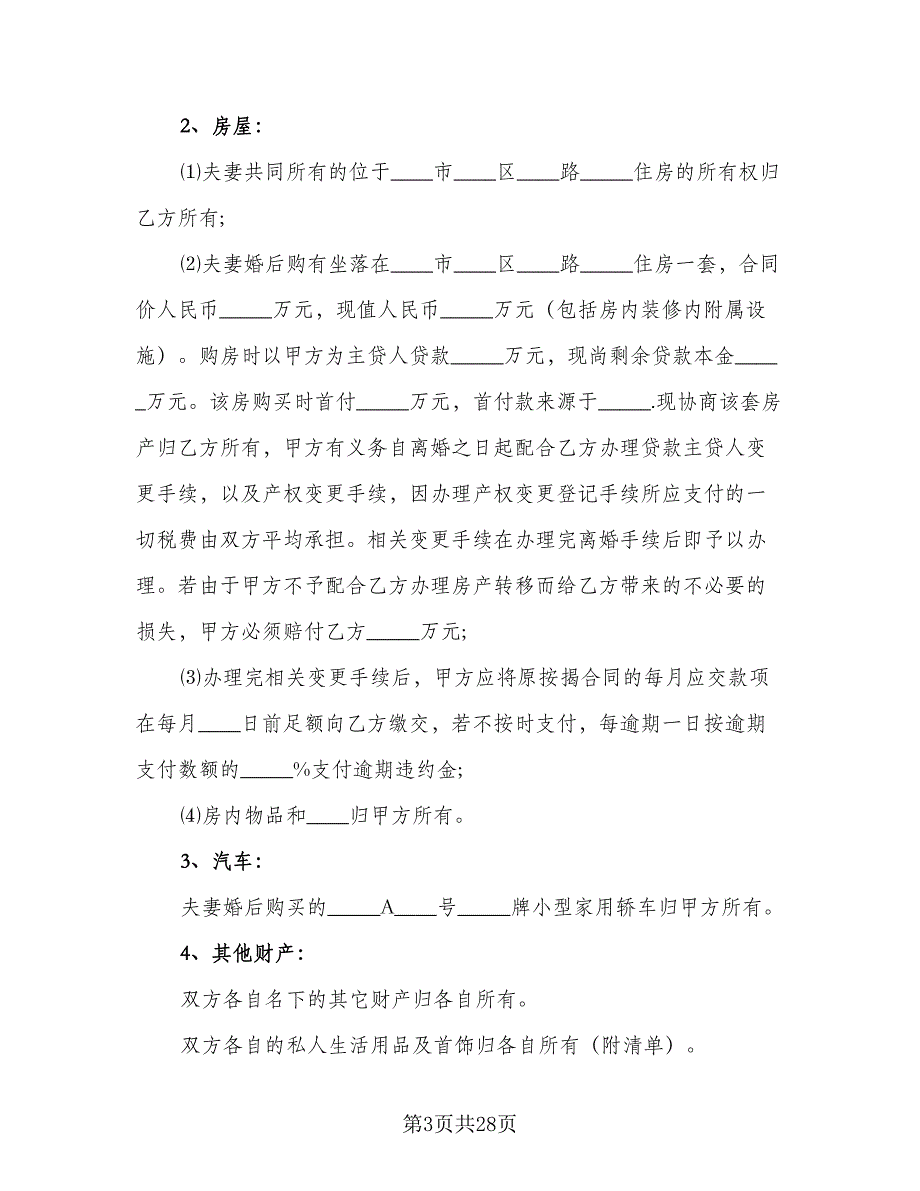 2、房屋：
⑴夫妻共同所有的位于____市____区____路_____住房的所有权归
乙方所有;
⑵夫妻婚后购有坐落在____市____区____路_____住房一套，合同
价人民币_____万元，现值人民币_____万元（包括房内装修内附属设
施）。购房时以甲方为主贷人贷款_____万元，现尚剩余贷款本金____
_万元。该房购买时首付_____万元，首付款来源于_____.现协商该套房
产归乙方所有，甲方有义务自离婚之日起配合乙方办理贷款主贷人变
更手续，以及产权变更手续，因办理产权变更登记手续所应支付的一
切税费由双方平均承担。相关变更手续在办理完离婚手续后即予以办
理。若由于甲方不予配合乙方办理房产转移而给乙方带来的不必要的
损失，甲方必须赔付乙方_____万元;
⑶办理完相关变更手续后，甲方应将原按揭合同的每月应交款项
在每月____日前足额向乙方缴交，若不按时支付，每逾期一日按逾期
支付数额的_____%支付逾期违约金;
⑷房内物品和____归甲方所有。
3、汽车：
夫妻婚后购买的_____A____号_____牌小型家用轿车归甲方所有。
4、其他财产：
双方各自名下的其它财产归各自所有。
双方各自的私人生活用品及首饰归各自所有（附清单）。
第3页共28页